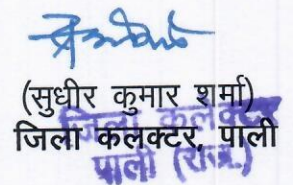 (सुधीर कुमार शर्मा)
जिला कलक्टर, पाली
जिला कलक्टर
पाली (राज.)